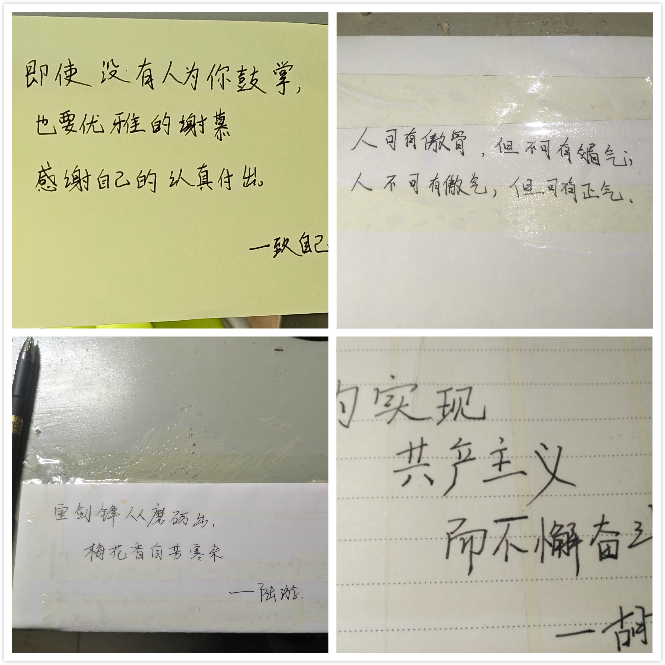 即使没有人为你鼓掌，
也要优雅的谢慕
感谢自己的认真付出。
一致自己
人可有傲骨，但不可有媚气；
人不可有傲气，但可有正气．
宝剑锋从磨砺出，
梅花香自苦寒来
——陆游．
的实现
共产主义
而不懈奋斗
—胡